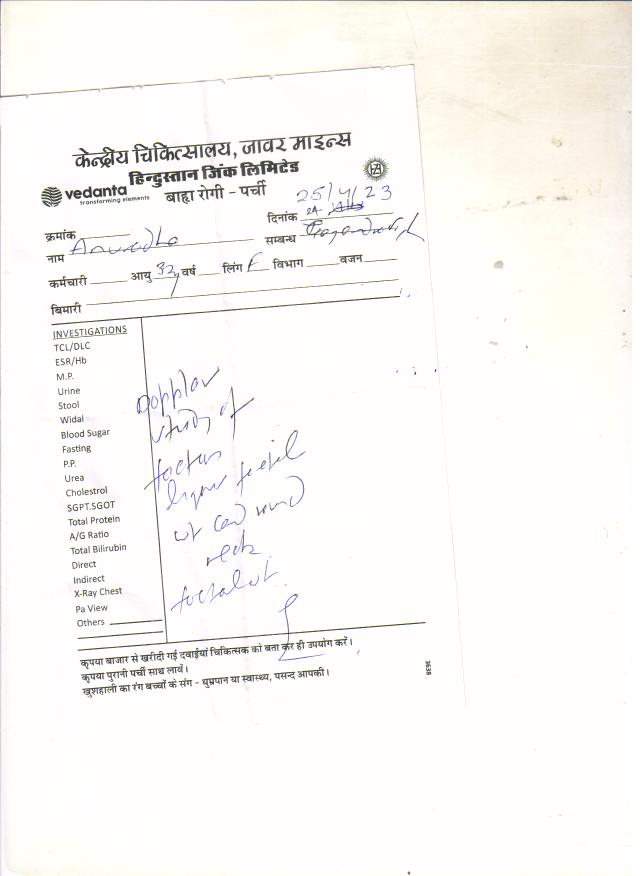 केन्द्रीय चिकित्सालय, जावर माइन्स
हिन्दुस्तान जिंक लिमिटेड
vedanta
transforming elements
बाह्य रोगी - पर्ची
25/4/23
क्रमांक
दिनांक
नाम Anuradha
सम्बन्ध
कर्मचारी आयु 32 वर्ष लिंग F विभाग वजन
बिमारी
INVESTIGATIONS
TCL/DLC
ESR/Hb
M.P.
Urine
Stool
Widal
Blood Sugar
Fasting
P.P.
Urea
Cholestrol
SGPT.SGOT
Total Protein
A/G Ratio
Total Bilirubin
Direct
Indirect
X-Ray Chest
Pa View
Others
Doppler
study of
foetus
liquor foetal
wt cord round
neck
foetal wt
कृपया बाजार से खरीदी गई दवाईयां चिकित्सक को बता कर ही उपयोग करें।
कृपया पुरानी पर्ची साथ लावें।
खुशहाली का रंग बच्चों के संग - धुम्रपान या स्वास्थ्य, पसन्द आपकी।
3638